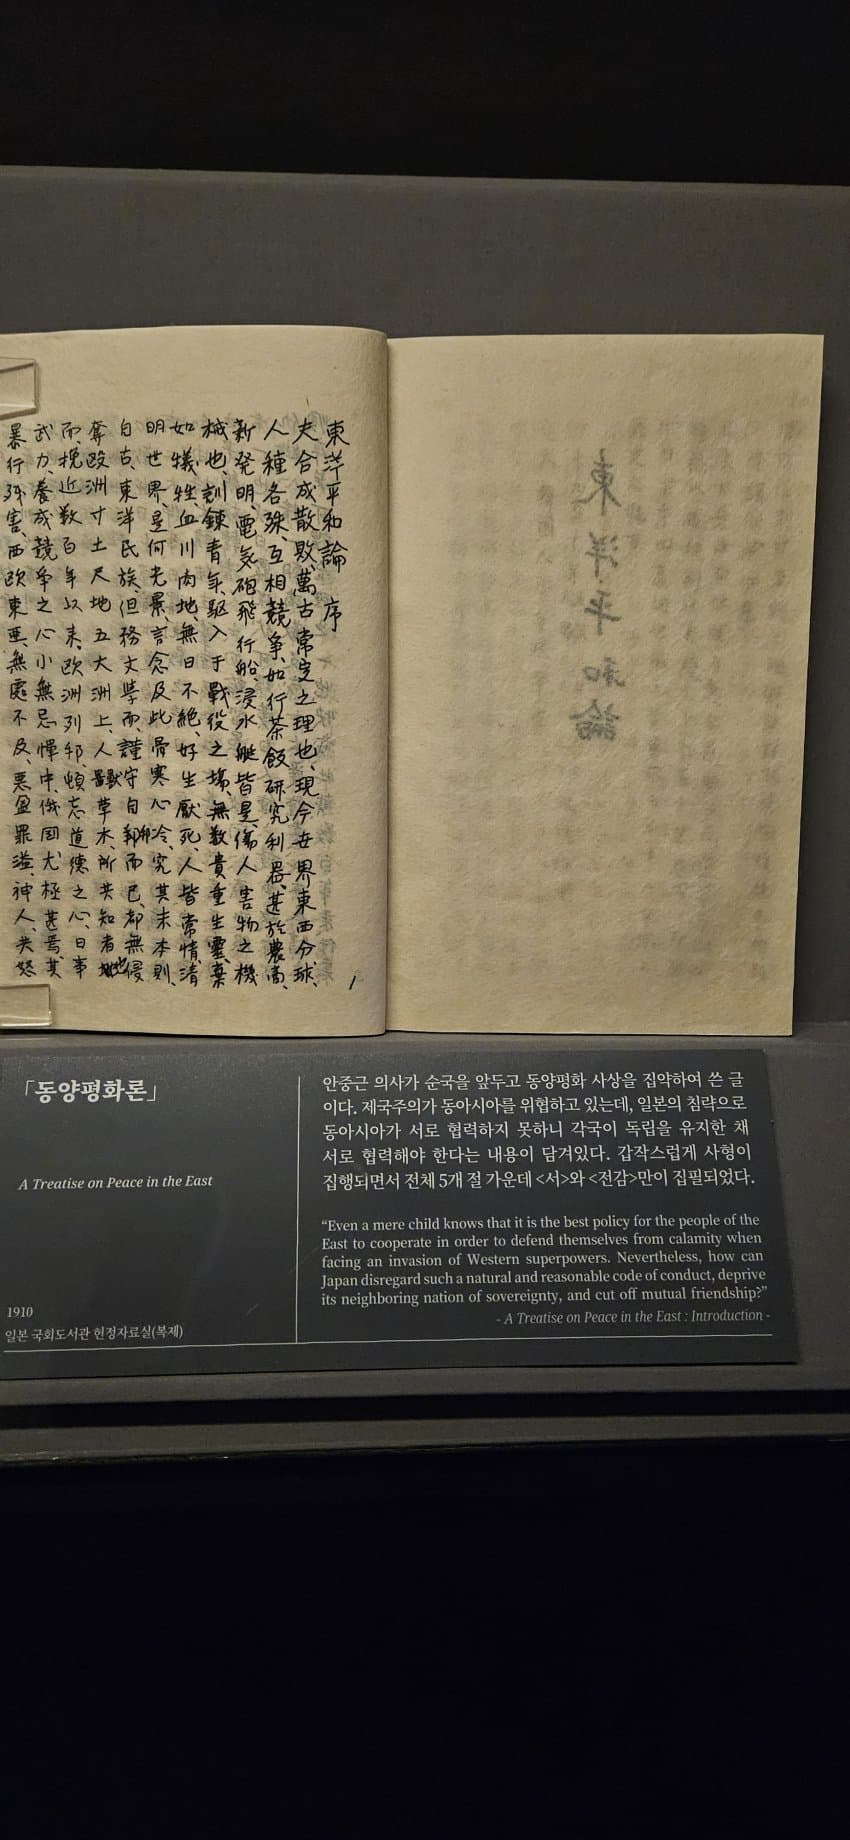 東洋平和論 序
夫合成散敗、萬古常定之理也、現今世界東西分球、
人種各殊、互相競争、如行茶飯研究利器、甚於農商、
新発明、電気砲飛行船、浸水艇皆是、傷人害物之機
械也、訓鍊青年、駆入于戰役之場、無数貴重生霊、棄
如犠牲血川肉地、無日不絶、好生厭死、人皆常情、清
明世界、是何光景、言念及此骨寒心冷、究其末本則、
自古、東洋民族、但務文學而、謹守自邦而已、都無侵
奪政洲寸土尺地五大洲上、人獸草木、所共知者也
而、挽近数百年以来、欧洲列邦、頓忘道徳之心、日事
武力、養成競争之心小無忌憚中、俄国尤極甚焉、其
暴行残害、西欧東亜、無處不及、悪盈罪溢、神人、共怒
1
東洋平和論
「동양평화론」
A Treatise on Peace in the East
1910
일본 국회도서관 헌정자료실(복제)
안중근 의사가 순국을 앞두고 동양평화 사상을 집약하여 쓴 글
이다. 제국주의가 동아시아를 위협하고 있는데, 일본의 침략으로
동아시아가 서로 협력하지 못하니 각국이 독립을 유지한 채
서로 협력해야 한다는 내용이 담겨있다. 갑작스럽게 사형이
집행되면서 전체 5개 절 가운데 <서>와 <전감>만이 집필되었다.
“Even a mere child knows that it is the best policy for the people of the
East to cooperate in order to defend themselves from calamity when
facing an invasion of Western superpowers. Nevertheless, how can
Japan disregard such a natural and reasonable code of conduct, deprive
its neighboring nation of sovereignty, and cut off mutual friendship?”
- A Treatise on Peace in the East : Introduction -